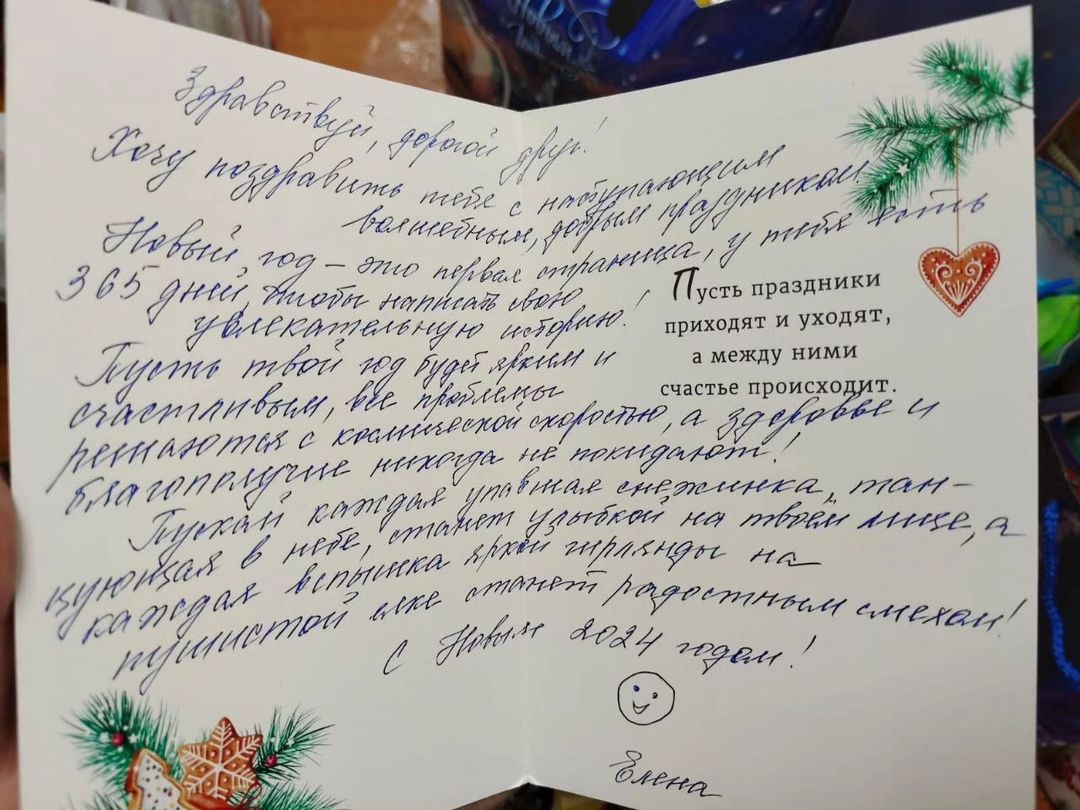 Здравствуй, дорогой друг!
Хочу поздравить тебя с наступающим
волшебным, добрым праздником
Новый год – это первая страница, у тебя есть
365 дней, чтобы написать свою
увлекательную историю!
Пусть твой год будет ярким и
счастливым, все проблемы
решаются с космической скоростью, а здоровье и
благополучие никогда не покидают!
Пускай каждая упавшая снежинка, тан-
цующая в небе, станет улыбкой на твоем лице, а
каждая вспышка яркой гирлянды на
пушистой елке станет радостным смехом!
С Новым 2024 годом!
Елена
Пусть праздники
приходят и уходят,
а между ними
счастье происходит.